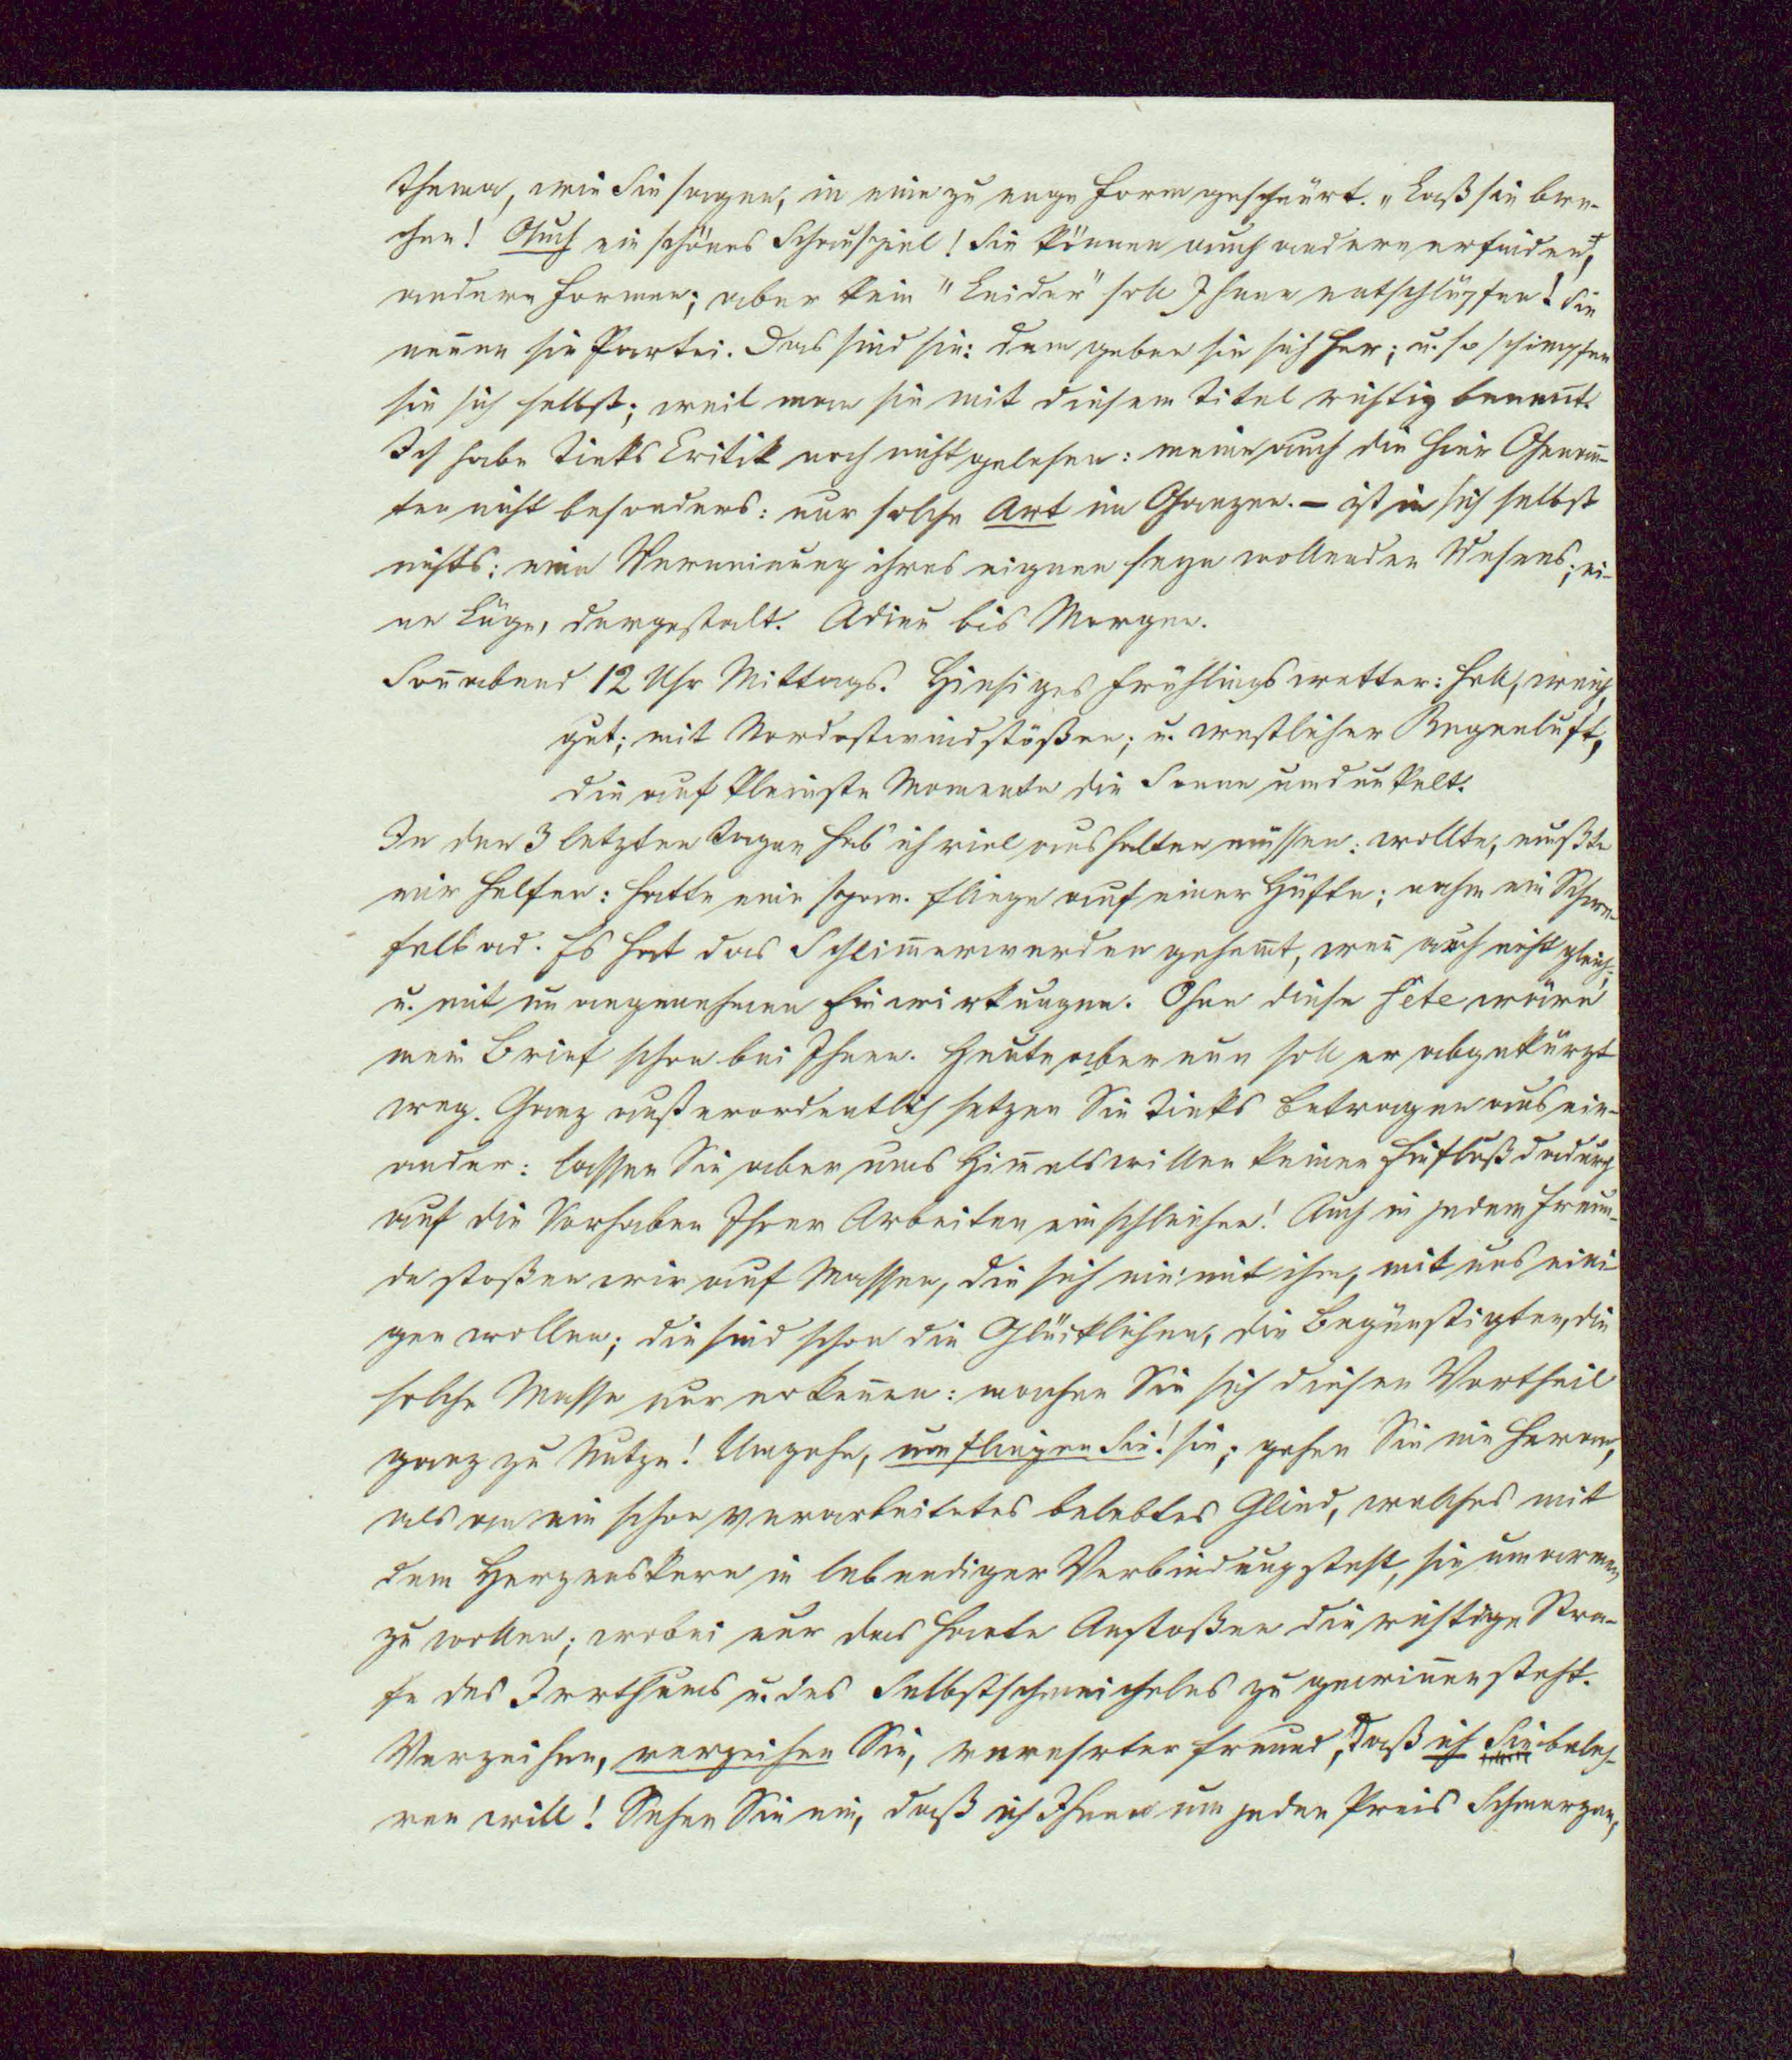 Thema, wie Sie sagen, in eine zu enge Form geschnürt. „Laß sie bre-
chen! Auch ein schönes Schauspiel! Sie können auch andere erfinden,
andere Formen; aber kein "Leider" soll Ihnen entschlüpfen! Sie
nennen sie Partei. Das sind sie: dem geben sie sich her; u. so schimpfen
sie sich selbst; weil man sie mit diesem Titel richtig benennt.
Ich habe Tieks Critik noch nicht gelesen: meine auch die hier Genann-
ten nicht besonders: nur solche Art im Ganzen. – ist in sich selbst
nichts: eine Verneinung ihres eignen seyn wollenden Wesens; ei-
ne Lüge, dergestalt. Adieu bis Morgen.
Sonnabend 12 Uhr Mittags. Hiesiges Frühlingswetter: hell, weich,
gut; mit Nordostwindstößen; u. westlicher Regenluft,
die auf kleinste Momente die Sonne umdunkelt.
In den 3 letzten Tagen hab' ich viel aushalten müssen: wollte, mußte
mir helfen: hatte eine span. Fliege auf einer Hüfte; nahm ein Schwe-
felbad. Es hat das Schlimmerwerden gehemmt, wenn auch nicht gleich,
u. mit unangenehmen Einwirkungen. Ohne diese fête wäre
mein Brief schon bei Ihnen. Heute aber nun soll er abgekürzt
weg. Ganz außerordentlich setzen Sie Tieks Betragen ausein-
ander: lassen Sie aber ums Himmelswillen keinen Einfluß dadurch
auf die Vorhaben Ihrer Arbeiten einschleichen! Auch in jedem Freun-
de stoßen wir auf Massen, die sich nie mit ihm, mit uns eini-
gen wollen; die sind schon die Glücklichen, die Begünstigten, die
solche Masse nur erkennen: machen Sie sich diesen Vortheil
ganz zu Nutze! Umgehe, umfliegen Sie! sie; gehen Sie nie heran,
als an ein schon verarbeitetes belebtes Glied, welches mit
dem Herzenskern in lebendiger Verbindung steht, sie umarmen
zu wollen; wobei nur das harte Anstoßen die richtige Stra-
fe des Irrthums u. des Selbstschmeichelns zu gewinnen steht.
Verzeihen, verzeihen Sie, verehrter Freund, daß ich Sie beleh-
ren will! Sehen Sie ein, daß ich Ihnen um jeden Preis Schmerzen,